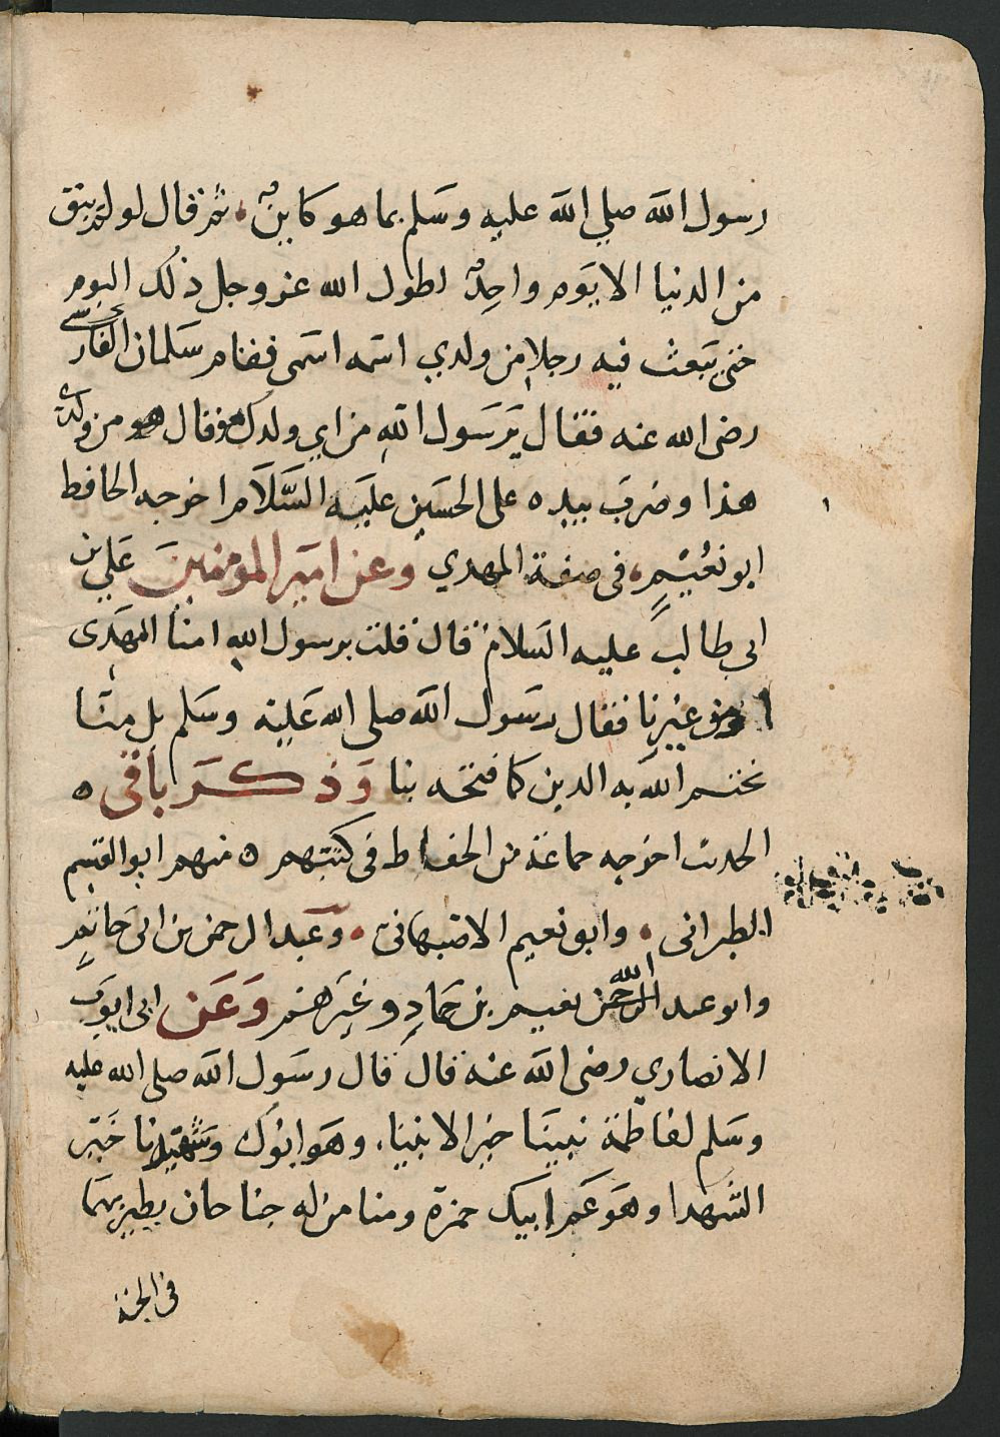 رسول الله صلي الله عليه وسلم بما هو كاين ثم قال لو لم يبق
من الدنيا الا يوم واحد لطول الله عز وجل ذلك اليوم
حتى يبعث فيه رجلا من ولدي اسمه اسمى فقام سلمان الفارسى
رضى الله عنه فقال يرسول الله من اي ولدك هو فقال هو من ولدى
هذا وضرب بيده على الحسين عليه السلام اخرجه الحافط
ابو نعيم في صفة المهدي وعن امير المومنين علي بن
ابى طالب عليه السلام قال قلت يرسول الله امنا المهدى
او من غيرنا فقال رسول الله صلى الله عليه وسلم بل منا
يختم الله به الدين كما فتحه بنا وذكر باقى
الحديث اخرجه جماعة من الحفاظ في كتبهم منهم ابو القسم
الطبرانى وابو نعيم الاصبهانى وعبد الرحمن بن ابى حاتم
وابو عبد الله الرحمن نعيم بن حماد وغيرهم وعن ابى ايوب
الانصاري رضى الله عنه قال قال رسول الله صلى الله عليه
وسلم لفاطمة نبينا خير الانبيا وهو ابوك وشهيدنا خير
الشهدا وهو عم ابيك حمزة ومنا من له جناحان يطير بهما
في الجنة